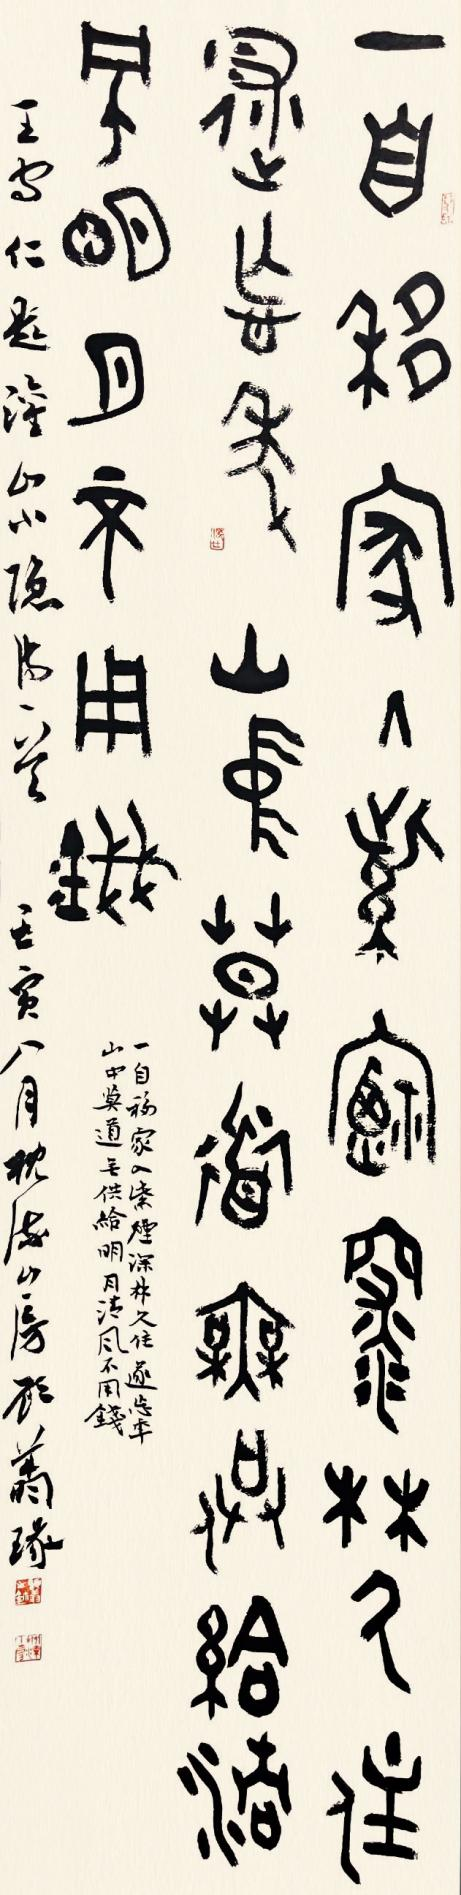 一自移家入紫煙深林久住
遂忘年 山中莫道無供給清
風明月不用錢
一自移家入紫煙深林久住遂忘年
山中莫道无供給明月清风不用錢
王守仁題灌山小隐诗一首 壬寅八月枕山房